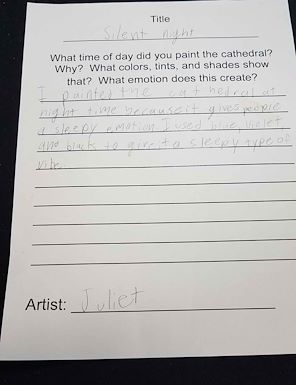 Title
Silent night
What time of day did you paint the cathedral?
Why? What colors, tints, and shades show
that? What emotion does this create?
I painted the cathedral at
night time because it gives people
a sleepy emotion I used blue, violet,
and black to give it a sleepy type of
vibe.
Artist: Juliet